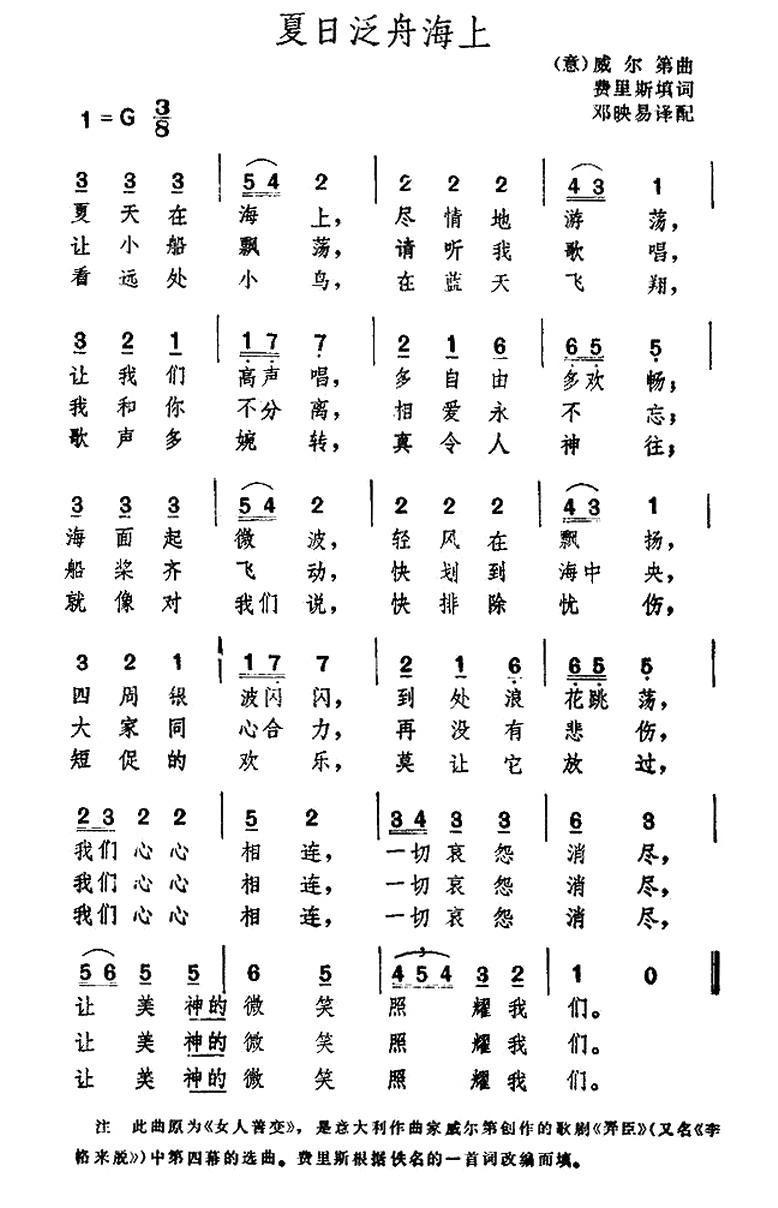 夏日泛舟海上
(意)威尔 第曲
费里斯填词
邓映易译配
1=G 3/8
3 3 3 | 5 4 2 | 2 2 2 | 4 3 1 |
夏 天 在 海 上， 尽 情 地 游 荡，
让 小 船 飘 荡， 请 听 我 歌 唱，
看 远 处 小 鸟， 在 蓝 天 飞 翔，
3 2 1 | 1 7 7 | 2 1 6 | 6 5 5 |
让 我 们 高声 唱， 多 自 由 多欢 畅；
我 和 你 不分 离， 相 爱 永 不 忘；
歌 声 多 婉 转， 真 令 人 神 往；
3 3 3 | 5 4 2 | 2 2 2 | 4 3 1 |
海 面 起 微 波， 轻 风 在 飘 扬，
船 桨 齐 飞 动， 快 划 到 海中 央，
就 像 对 我们 说， 快 排 除 忧 伤，
3 2 1 | 1 7 7 | 2 1 6 | 6 5 5
四 周 银 波闪 闪， 到 处 浪 花跳 荡，
大 家 同 心合 力， 再 没 有 悲 伤，
短 促 的 欢 乐， 莫 让 它 放 过，
2 3 2 2 | 5 2 | 3 4 3 3 | 6 3 |
我们 心 心 相 连， 一切 哀 怨 消 尽，
我们 心 心 相 连， 一切 哀 怨 消 尽，
我们 心 心 相 连， 一切 哀 怨 消 尽，
5 6 5 5 | 6 5 | 3 4 5 4 3 2 | 1 0
让 美 神的 微 笑 照 耀 我 们。
让 美 神的 微 笑 照 耀 我 们。
让 美 神的 微 笑 照 耀 我 们。
注 此曲原为《女人善变》，是意大利作曲家威尔第创作的歌剧《弄臣》(又名《李
格来脱》)中第四幕的选曲。费里斯根据佚名的一首词改编而填。